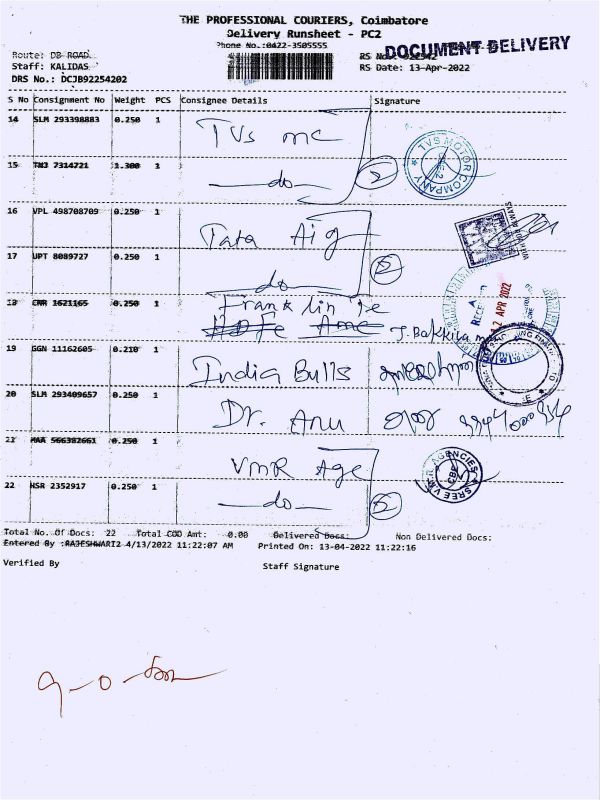 THE PROFESSIONAL COURIERS, Coimbatore
Delivery Runsheet - PC2
Phone No.:0422-3505555
DOCUMENT DELIVERY
Route: DB ROAD
Staff: KALIDAS
RS Date: 13-Apr-2022
DRS No.: DCJB92254202
S No Consignment No Weight PCS Consignee Details Signature
14 SLM 293398883 0.250 1 TVs mc
TVS MOTOR COMPANY
15 TN3 7314721 1.300 1 do 2
16 VPL 498708709 0.250 1 Tata Aig
17 UPT 8089727 0.250 1 do 2
2 APR 2022
18 CNR 1621165 0.250 1 Franklin Te
19 GGN 11162605 0.210 1 India Bulls
20 SLM 293409657 0.250 1 Dr. Anu
21 MAA 566382661 0.250 1 VMR Age
SREE V.M.R. AGENCIES CBE
22 HSR 2352917 0.250 1 do 2
Total No. Of Docs: 22 Total COD Amt: 0.00 Delivered Docs: Non Delivered Docs:
Entered By :RAJESHWARI2 4/13/2022 11:22:07 AM Printed On: 13-04-2022 11:22:16
Verified By Staff Signature